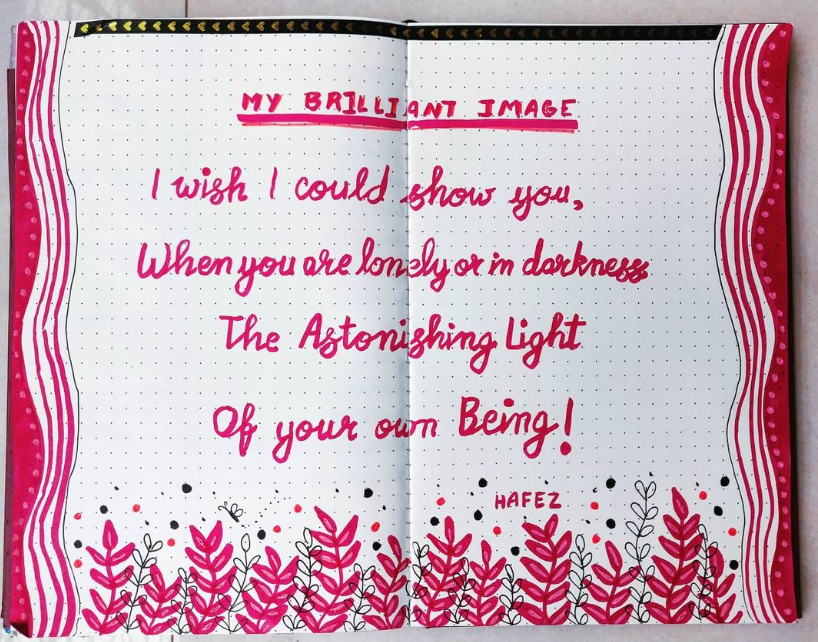 MY BRILLIANT IMAGE
I wish I could show you,
When you are lonely or in darkness
The Astonishing Light
Of your own Being!
HAFEZ